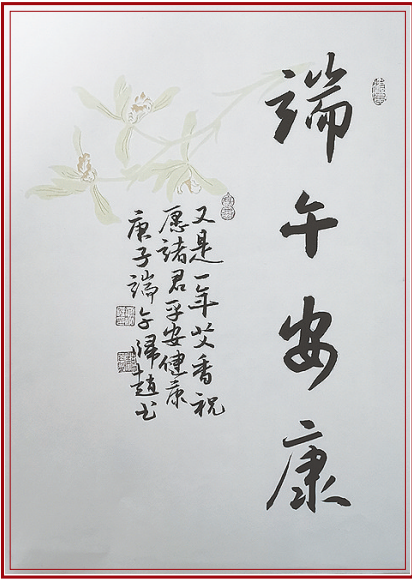 端午安康
又是一年艾香祝
愿诸君平安健康
庚子端午归赵书